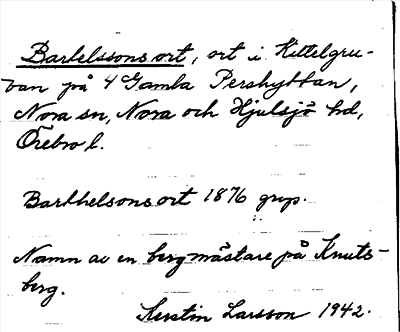 Barbelssons ort, ort i Kittelgru-
van på 4 Gamla Pershyttan,
Nora sn, Nora och Hjulsjö hd,
Örebro l.
Barthelsons ort 1876 grup.
Namn av en bergmästare på Knuts-
berg.
Kerstin Larsson 1942.